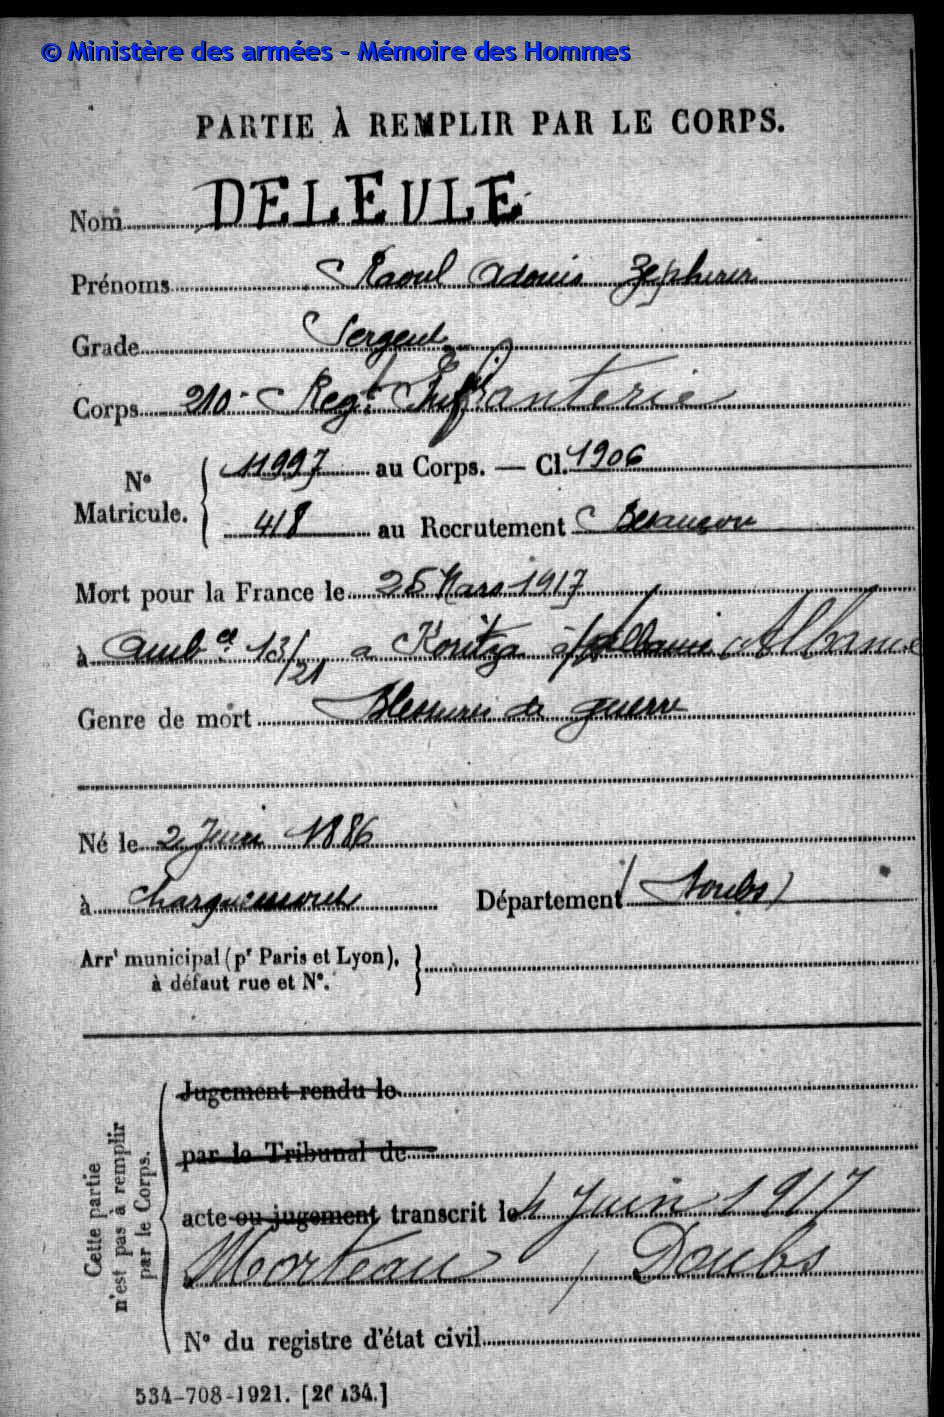 © Ministère des armées - Mémoire des Hommes
PARTIE À REMPLIR PAR LE CORPS.
Nom DELEULE
Prénoms Raoul Adonis Zéphirin
Grade Sergent
Corps 210e Regt Infanterie
No Matricule. 11997 au Corps. — Cl. 1906
418 au Recrutement Besançon
Mort pour la France le 25 Mars 1917
à Ambce 13/21 a Koritza à Albanie Albanie
Genre de mort Blessures de guerre
Né le 2 Juin 1886
à Charquemont Département (Doubs)
Arrt municipal (pr Paris et Lyon),
à défaut rue et No.
Cette partie
n'est pas à remplir
par le Corps.
Jugement rendu le
par le Tribunal de
acte ou jugement transcrit le 4 Juin 1917
à Morteau, Doubs
No du registre d'état civil
534-708-1921. [26434.]